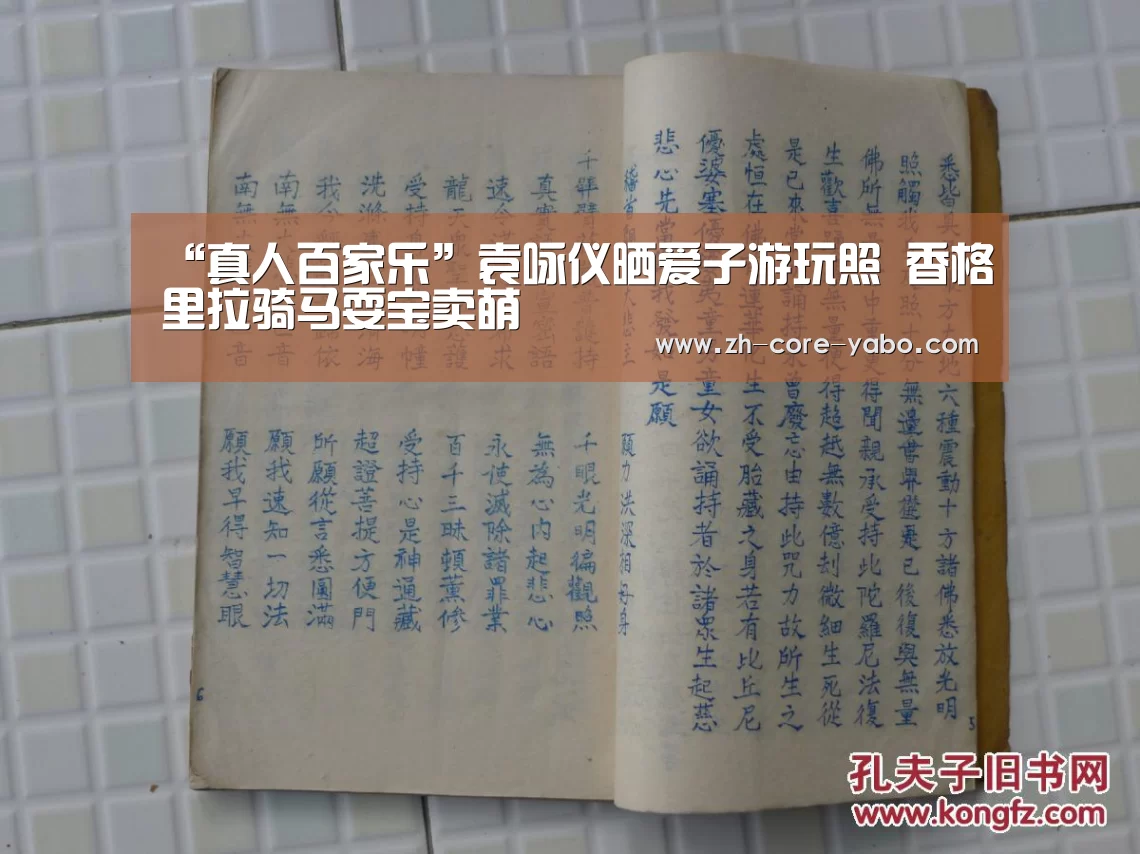 “真人百家乐”袁咏仪晒爱子游玩照 香格
里拉骑马耍宝卖萌
www.zh-core-yabo.com
悉皆具方大地六種震動十方諸佛悉放光明
照觸我照十方無邊世界從是已後復與無量
佛所無中重更得聞親承受持此陀羅尼法復
生歡喜無量便得超越無數億刧微細生死從
是已來常誦持未曾廢忘由持此咒力故所生之
處恒在佛蓮華化生不受胎藏之身若有比丘尼
優婆塞優夷童男童女欲誦持者於諸眾生起慈
悲心先當我發如是願
稽首大悲主 願力洪深相好身
千臂普護持 千眼光明徧觀照
真實宣密語 無為心內起悲心
速令滿求 永使滅除諸罪業
龍天護 百千三昧頓薰修
受持幢 受持心是神通藏
洗滌濟海 超證菩提方便門
我今歸依 所願從言悉圓滿
南無音 願我速知一切法
南無音 願我早得智慧眼
6
5
孔夫子旧书网
www.kongfz.com